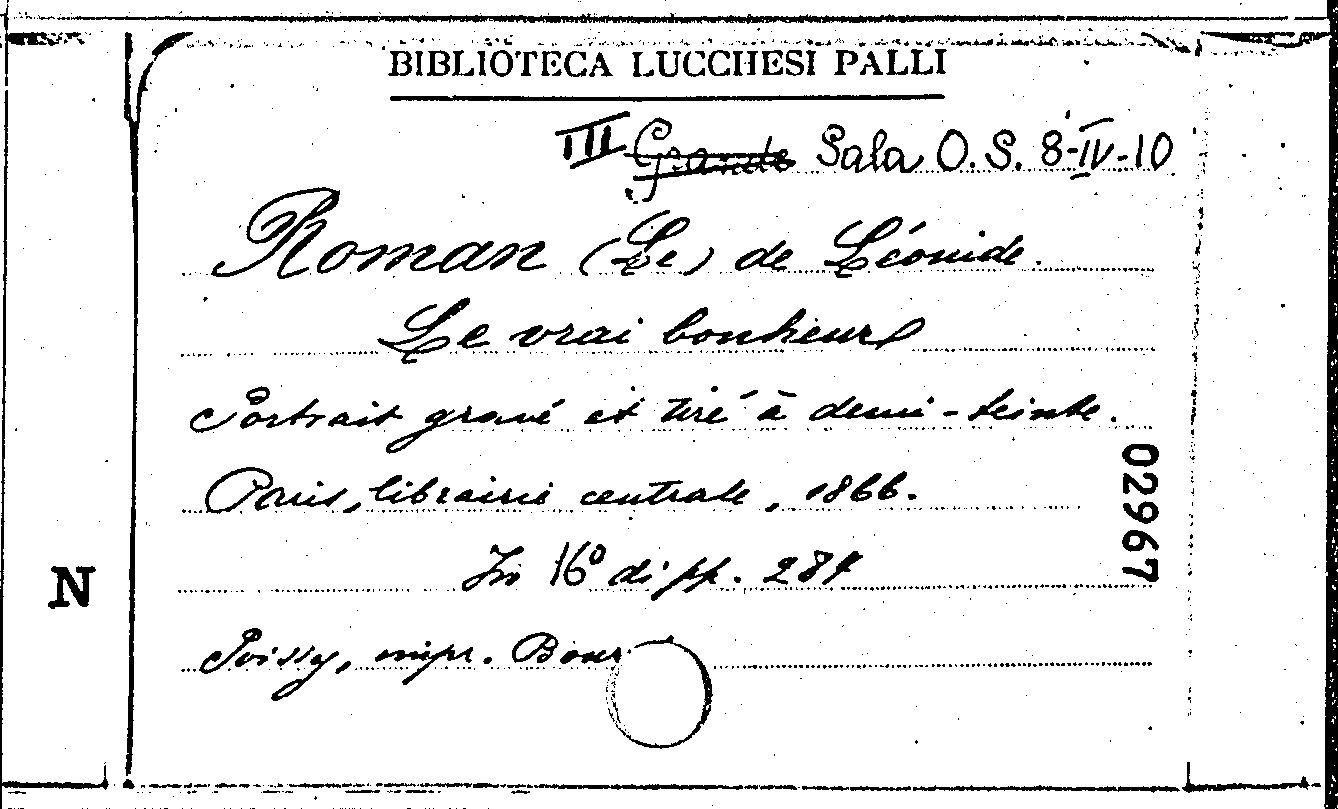 BIBLIOTECA LUCCHESI PALLI
III Grande Sala O.S. 8-IV-10
Roman (Le) de Léonide.
Le vrai bonheur
Portrait gravé et tiré à demi-teinte.
Paris, librairie centrale, 1866.
In 16º di pp. 284
Poissy, impr. Bour
02967
N